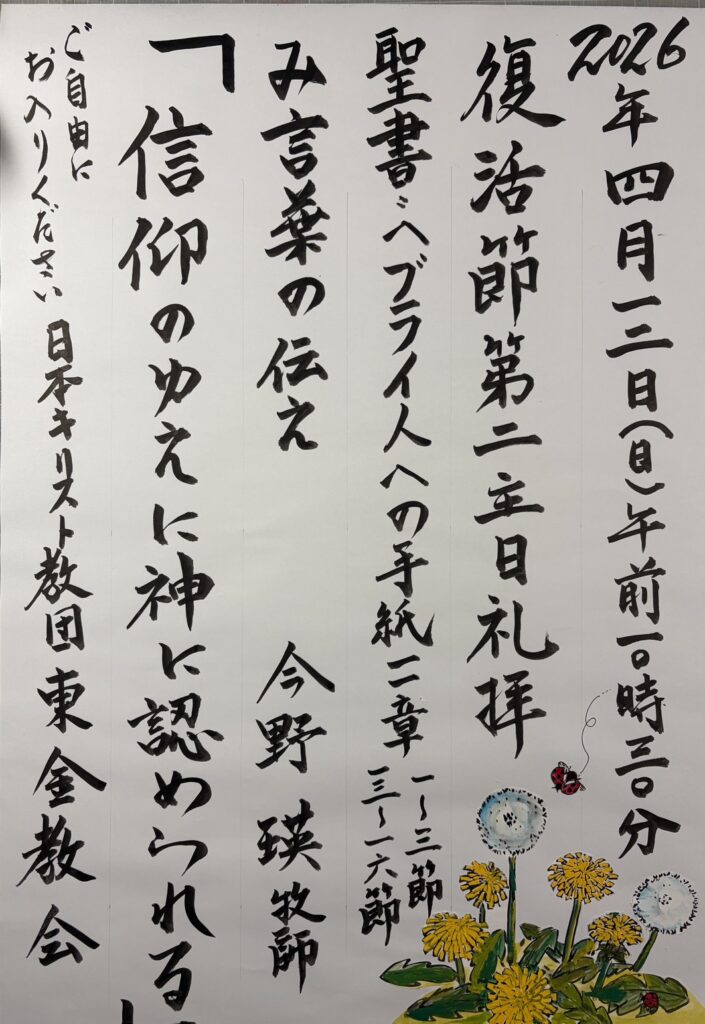 2026年四月一二日(日)午前一〇時三〇分
復活節第二主日礼拝
聖書:ヘブライ人への手紙一一章 一~三節
一三~一六節
み言葉の伝え 今野瑛牧師
「信仰のゆえに神に認められる」
ご自由に
お入りください 日本キリスト教団東金教会